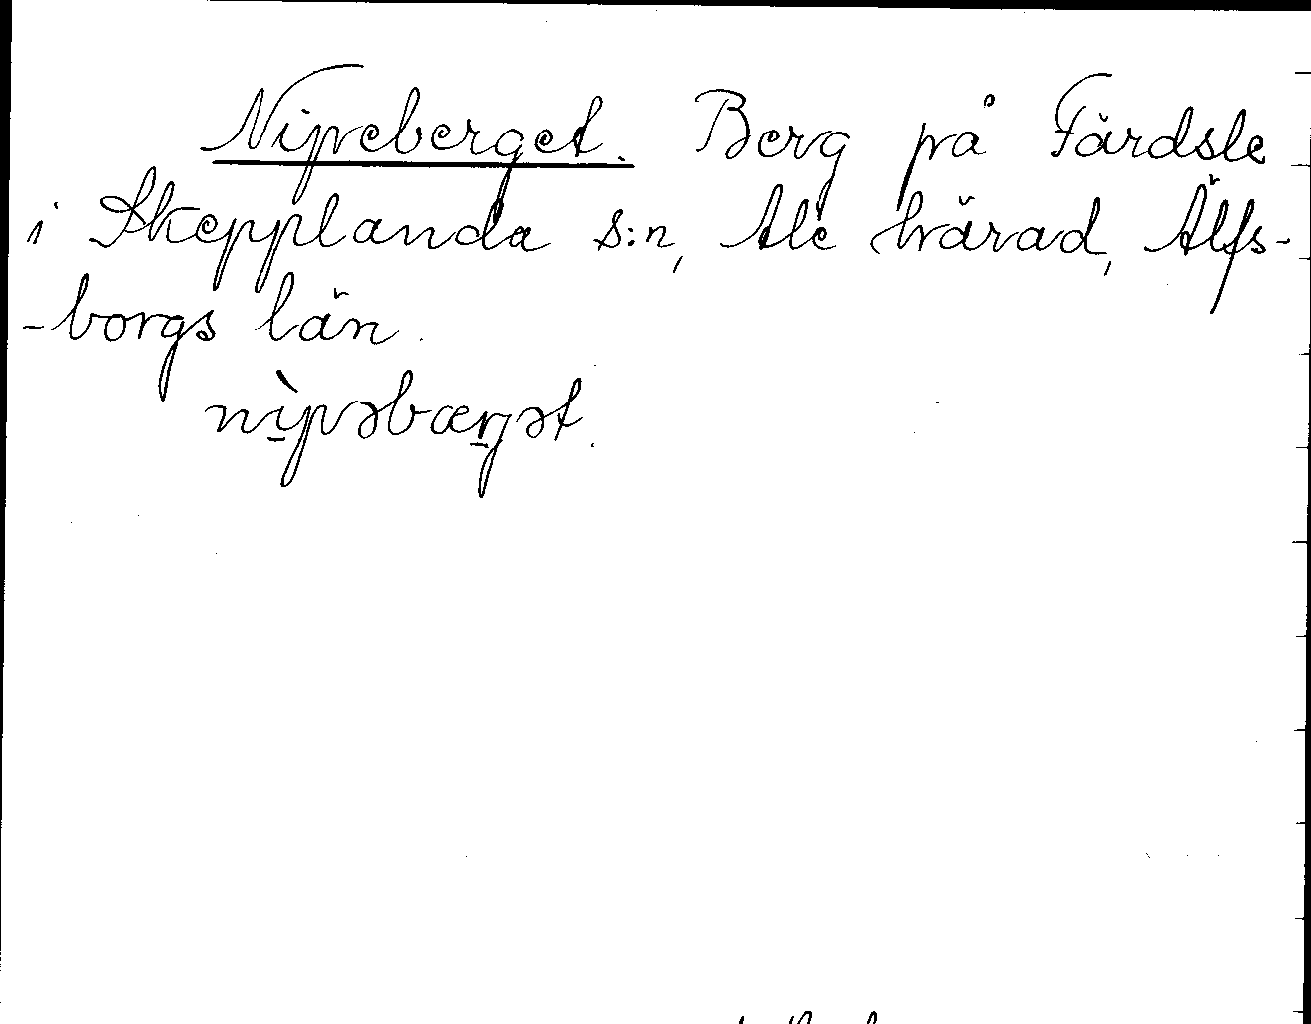 Nipeberget. Berg på Färdsle
i Skepplanda s:n, Ale härad, Älfs-
-borgs län.
nìpəbærgət.